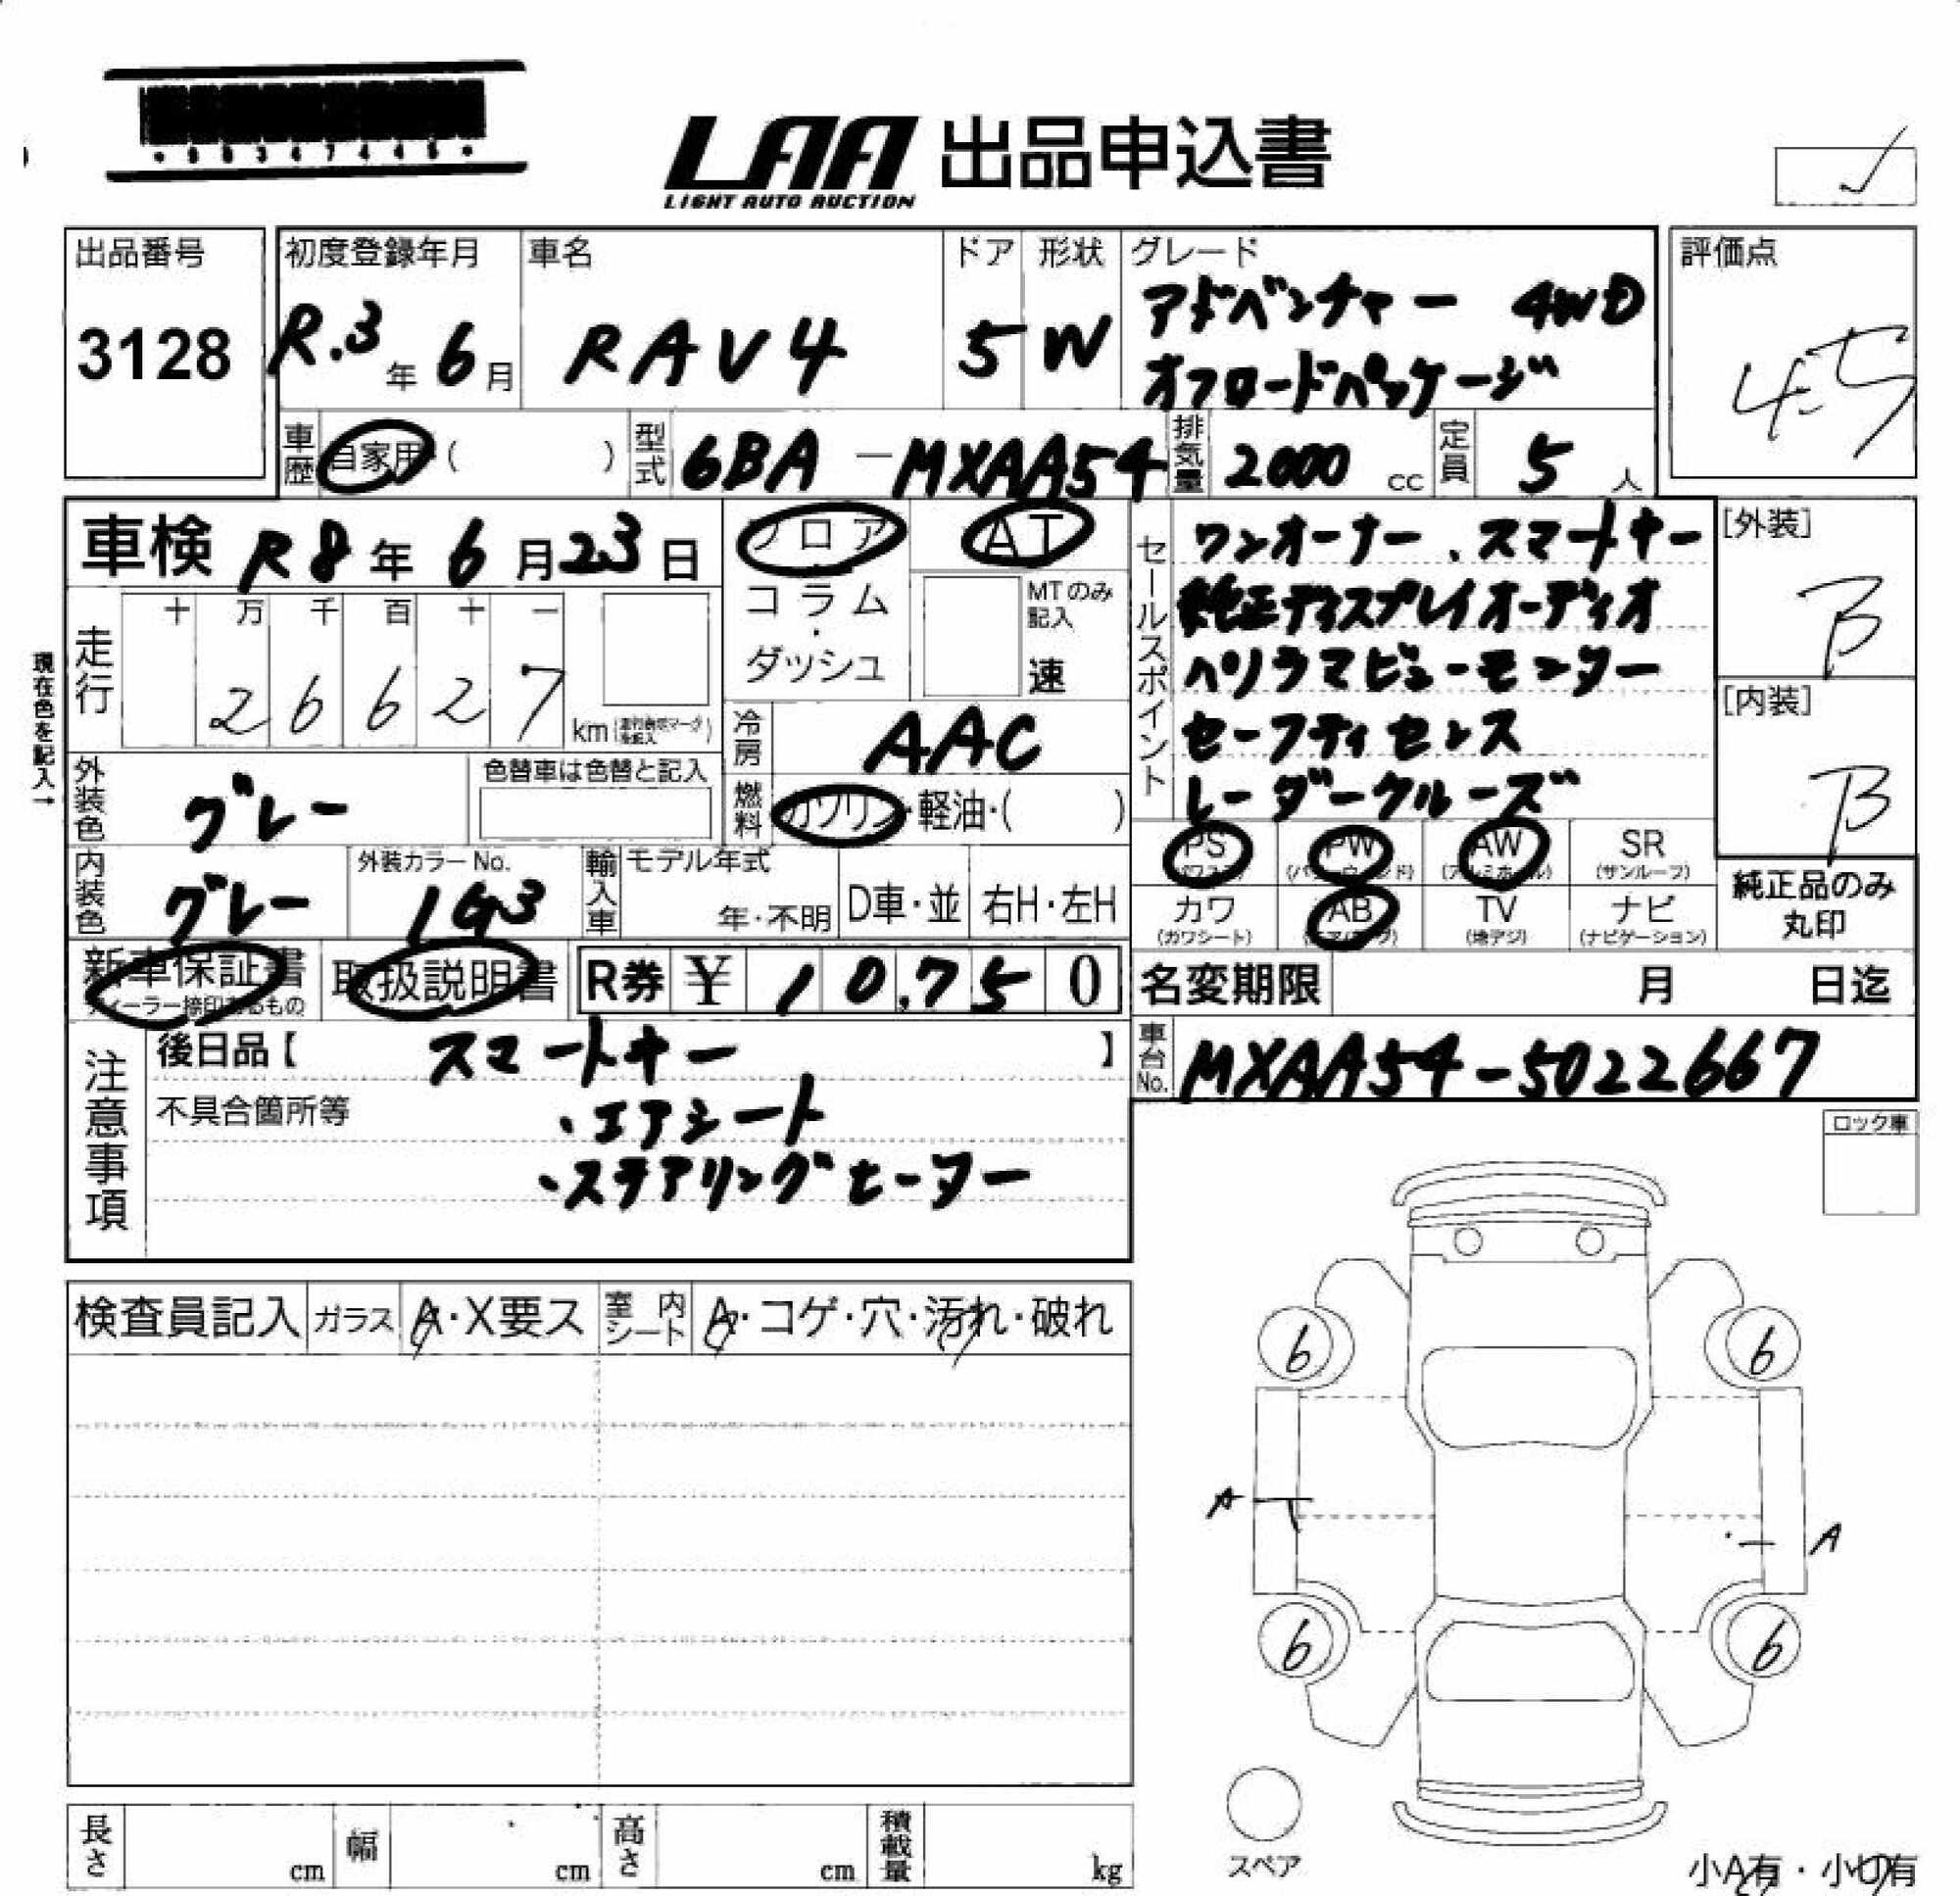 LAA 出品申込書
LIGHT AUTO AUCTION
出品番号
3128
初度登録年月
R.3年6月
車名
RAV4
ドア
5
形状
W
グレード
アドベンチャー 4WD
オフロードパッケージ
評価点
4.5
車歴
自家用・( )
型式
6BA-MXAA54
排気量
2000 cc
定員
5人
車検 R8年6月23日
フロア
コラム
ダッシュ
AT
MTのみ記入
速
走行
十 万 千 百 十 一
2 6 6 2 7
km
現在色を記入→
冷房
AAC
外装色
グレー
色替車は色替と記入
燃料
ガソリン・軽油・( )
内装色
グレー
外装カラーNo.
1G3
輸入車
モデル年式
年・不明
D車・並
右H・左H
セールスポイント
ワンオーナー、スマートキー
純正ディスプレイオーディオ
パノラマビューモニター
セーフティセンス
レーダークルーズ
[外装]
B
[内装]
B
PS PW AW SR
(サンルーフ)
カワ AB TV ナビ
(カワシート) (地デジ) (ナビゲーション)
純正品のみ
丸印
新車保証書
取扱説明書
R券 ¥ 10,750
名変期限 月 日迄
車台No.
MXAA54-5022667
注意事項
後日品【 スマートキー 】
不具合箇所等
・エアシート
・ステアリングヒーター
ロック車
検査員記入
ガラス
A・X要ス
室内シート
A・コゲ・穴・汚れ・破れ
6 6
A
A
6 6
スペア
小A有・小U有
長さ cm
幅 cm
高さ cm
積載量 kg